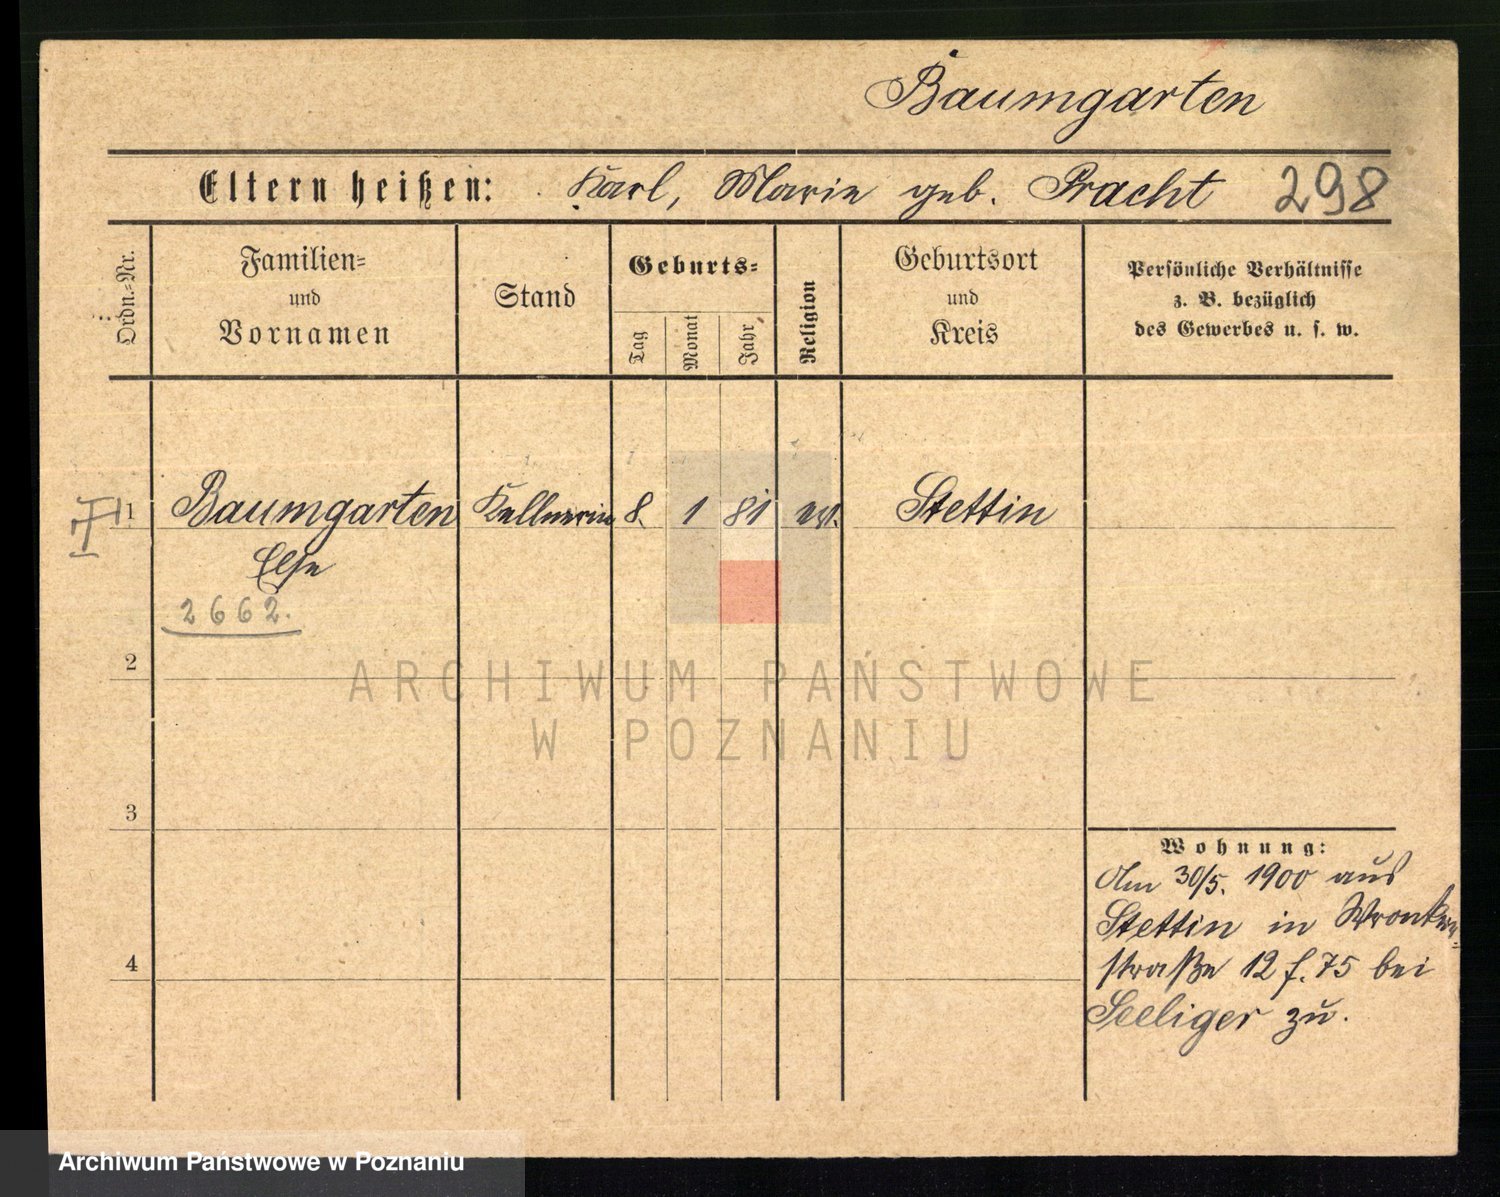 Baumgarten
Eltern heißen: Karl, Marie geb. Pracht 298
Ordn.=Nr.
Familien=
und
Vornamen
Stand
Geburts=
Tag
Monat
Jahr
Religion
Geburtsort
und
Kreis
Persönliche Verhältnisse
z. B. bezüglich
des Gewerbes u. s. w.
1 Baumgarten Kellnerin 8. 1 81 ev. Stettin
Else
2662.
2
ARCHIWUM PAŃSTWOWE
W POZNANIU
3
4
Wohnung:
Am 30/5. 1900 aus
Stettin in Wronker=
straße 12 f. 75 bei
Seeliger zu.
Archiwum Państwowe w Poznaniu